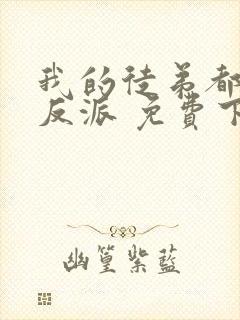 我的徒弟都
反派 免費下
幽篁紫藍